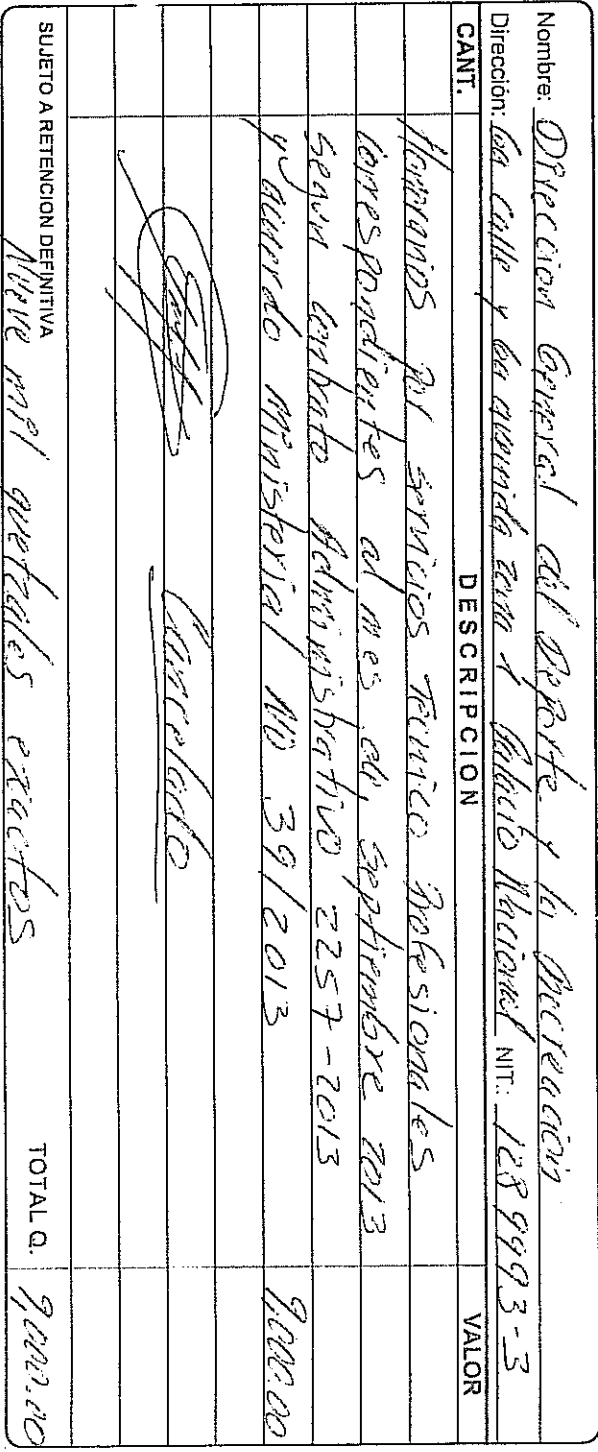 Nombre: Dirección General del Deporte y la Recreación
Dirección: 6a calle y 6a avenida zona 1 Palacio Nacional NIT.: 1289993-3
CANT. DESCRIPCION VALOR
Honorarios por servicios Tecnico Profesionales
correspondientes al mes de Septiembre 2013
segun contrato Administrativo 2257-2013
y acuerdo Ministerial No 39/2013 9,000.00
Cancelado
SUJETO A RETENCION DEFINITIVA
Nueve mil quetzales exactos TOTAL Q. 9,000.00